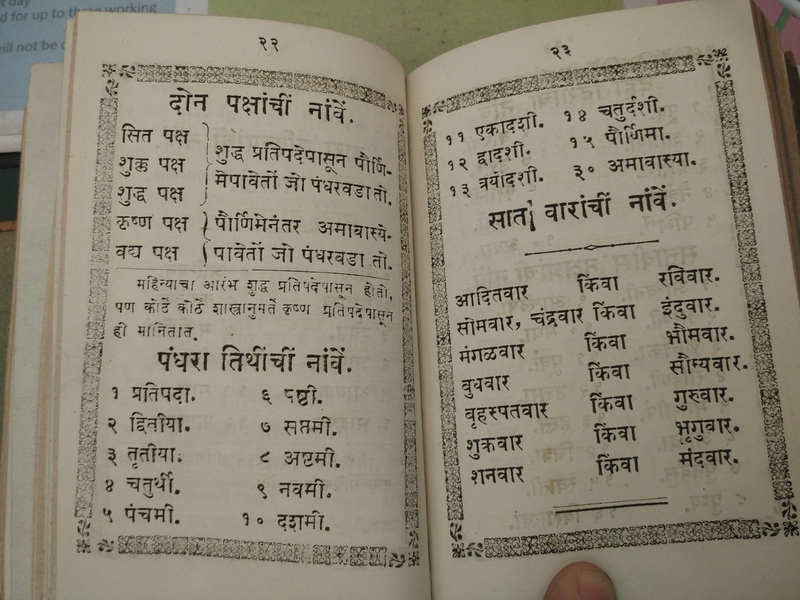 st day
d for up to three working
will not be d
२२
दोन पक्षांचीं नांवें.
सित पक्ष
शुक्ल पक्ष
शुद्ध पक्ष
शुद्ध प्रतिपदेपासून पौर्णि-
मेपावेतों जो पंधरवडा तो.
कृष्ण पक्ष
वद्य पक्ष
पौर्णिमेनंतर अमावास्ये-
पावेतों जो पंधरवडा तो.
महिन्याचा आरंभ शुद्ध प्रतिपदेपासून होतो,
पण कोठें कोठें शास्त्रानुमतें कृष्ण प्रतिपदेपासून
ही मानितात.
पंधरा तिथींचीं नांवें.
१ प्रतिपदा. ६ षष्टी.
२ द्वितीया. ७ सप्तमी.
३ तृतीया. ८ अष्टमी.
४ चतुर्थी. ९ नवमी.
५ पंचमी. १० दशमी.
२३
११ एकादशी. १४ चतुर्दशी.
१२ द्वादशी. १५ पौर्णिमा.
१३ त्रयोदशी. ३० अमावास्या.
सात वारांचीं नांवें.
आदितवार किंवा रविवार.
सोमवार, चंद्रवार किंवा इंदुवार.
मंगळवार किंवा भौमवार.
बुधवार किंवा सौम्यवार.
बृहस्पतवार किंवा गुरुवार.
शुक्रवार किंवा भृगुवार.
शनवार किंवा मंदवार.